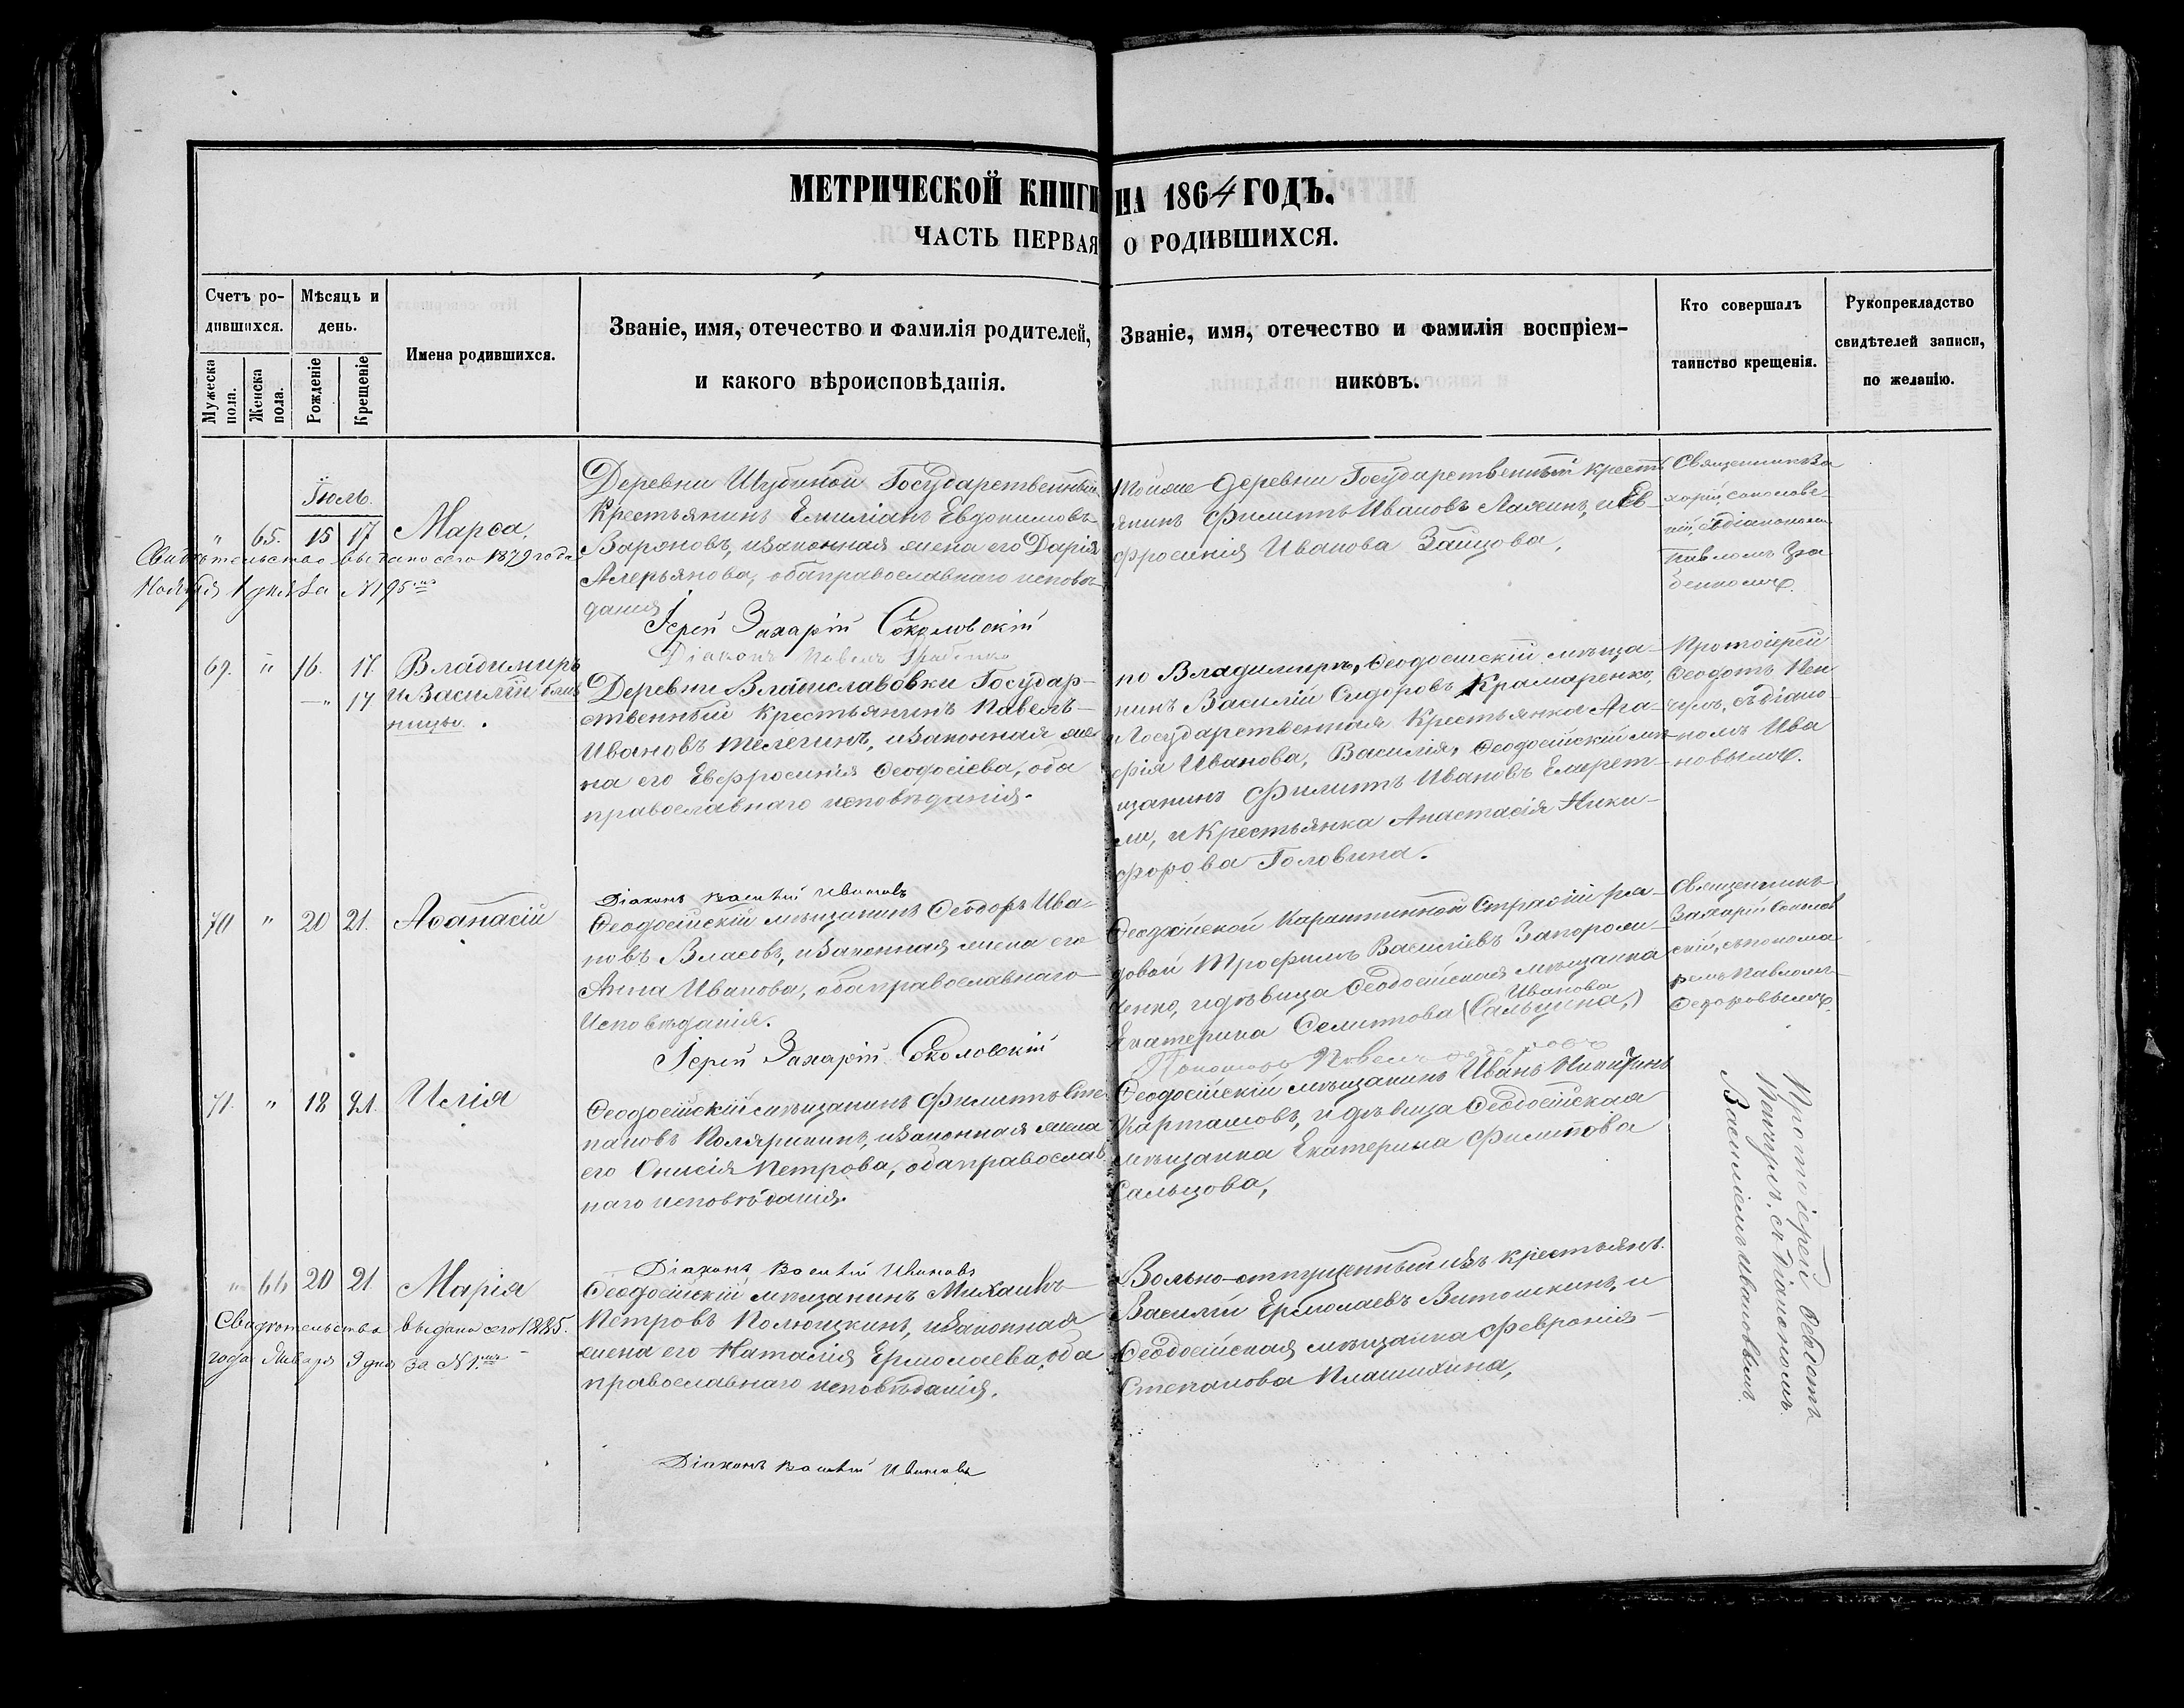 МЕТРИЧЕСКОЙ КНИГИ НА 1864 ГОДЪ.
ЧАСТЬ ПЕРВАЯ О РОДИВШИХСЯ.
Счетъ ро-
дившихся.
Мужеска
пола.
Женска
пола.
Мѣсяцъ и
день.
Рожденіе
Крещеніе
Имена родившихся.
Званіе, имя, отечество и фамилія родителей,
и какого вѣроисповѣданія.
Званіе, имя, отечество и фамилія воспріем-
никовъ.
Кто совершалъ
таинство крещенія.
Рукопрекладство
свидѣтелей записи,
по желанію.
Іюль.
" 65. 15 17 Марѳа,
Свидѣтельство выдано сего 1879 года
Ноября 1 дня за №95
Деревни Шубиной Государственный
Крестьянинъ Емиліанъ Евдокимовъ
изаконная жена его Дарія
обаправославнаго исповѣ-
данія
Іерей Захарій Соколовскій
Діаконъ Павелъ
тойже деревни Государственный крестъ
янинъ Филиппъ Ивановъ иЕв-
фросинія Иванова Зайцова,
Священникъ За
харій Соколовс-
кій, съдіакономъ
Павломъ
69. " 16. 17. Владимиръ
—" 17 иВасилій близ
нецы.
Деревни Владиславовки Государ-
ственный крестьянинъ Павелъ
Ивановъ Телегинъ, изаконная же
на его Евфросинія Ѳеодосіева, оба
православнаго исповѣданія.
Діаконъ Василій Ивановъ
по Владимиръ, Ѳеодосійскій мѣща-
нинъ Василій Сидоровъ Крамаренко,
и Государственная Крестьянка Ага-
фія Иванова, Василія, Ѳеодосійскій мѣ-
щанинъ Филиппъ Ивановъ
и Крестьянка Анастасія Ники-
форова Головина.
Протоіерей
Ѳеодотъ
съдіако-
номъ Ива
новымъ.
70 " 20 21. Аѳанасій
Ѳеодосійскій мѣщанинъ Ѳеодоръ Ива-
новъ Власовъ, изаконная жена его
Анна Иванова, обаправославнаго
Исповѣданія.
Іерей Захарій Соколовскій
Ѳеодосійской Карантинной Стражи ря-
довой Трофимъ Васильевъ Запорож-
ченко, идѣвица Ѳеодосійская мѣщанка
Иванова
Екатерина
Пономарь Павелъ
Священникъ
Захарій Соколов
скій, съпонома
ремъ Павломъ
Ѳедоровымъ.
71. " 18 21. Илія
Ѳеодосійскій мѣщанинъ Филиппъ Сте
пановъ изаконная жена
его Онисія Петрова, обаправослав
наго исповѣданія.
Діаконъ Василій Ивановъ
Ѳеодосійскій мѣщанинъ Иванъ Никитинъ
Карташовъ, и дѣвица Ѳеодосійская
мѣщанка Екатерина Филипова
Сальцова,
Протоіерей Ѳеодотъ
съ Діакономъ
Василіемъ Ивановымъ.
" 66 20 21 Марія
Свидѣтельство выдано сего 1885.
года Января 9 дня за №1.
Ѳеодосійскій мѣщанинъ Михаилъ
Петровъ изаконная
жена его Наталія Ермолаева, оба
православнаго исповѣданія,
Діаконъ Василій Ивановъ
Вольно-отпущенный изъ крестьянъ
Василій Ермолаевъ Витошкинъ, и
Ѳеодосійская мѣщанка Февронія
Степанова